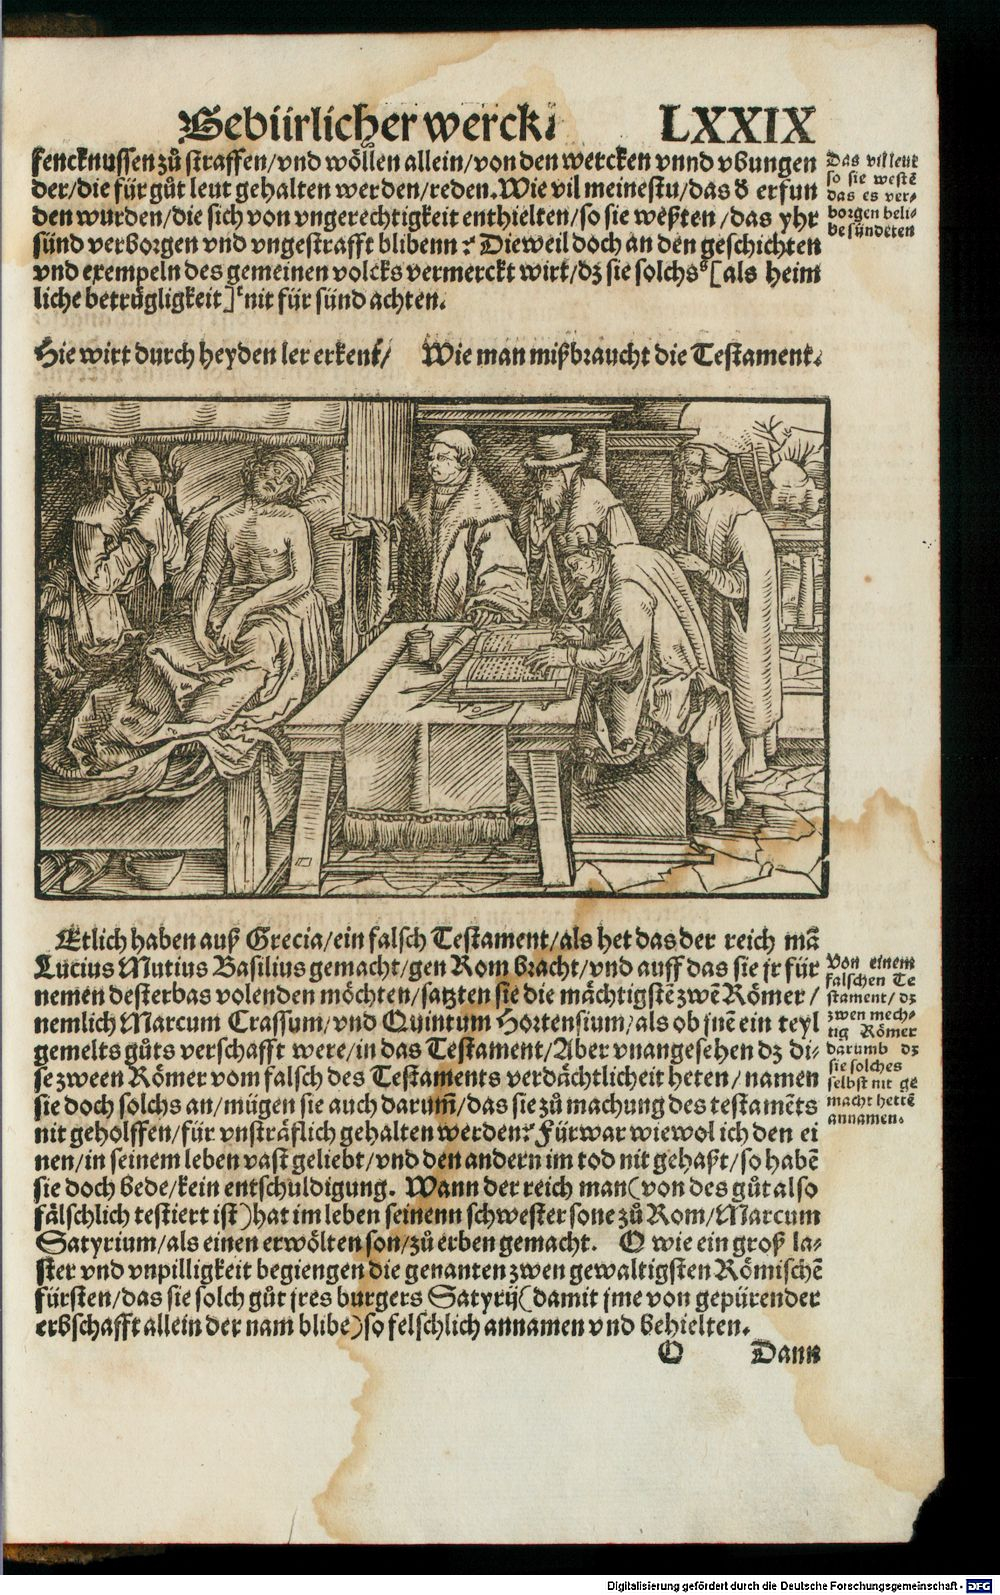 Gebürlicher werck. LXXIX
fencknussen zů straffen/vnd wöllen allein/von den wercken vnnd vbungen
der/die für gůt leut gehalten werden/reden. Wie vil meinestu/das ð erfun
den wurden/die sich von vngerechtigkeit enthielten/so sie weßten/das yhr
sünd verborgen vnd vngestrafft blibenn? Dieweil doch an den geschichten
vnd exempeln des gemeinen volcks vermerckt wirt/dz sie solchs [als heim
liche betrügligkeit] nit für sünd achten.
Das vil leut
so sie westē
das es ver-
borgen beli-
be sündeten
Hie wirt durch heyden ler erkent/ Wie man mißbraucht die Testament.
Etlich haben auß Grecia/ein falsch Testament/als het das der reich mā
Lucius Mutius Basilius gemacht/gen Rom bracht/vnd auff das sie jr für
nemen desterbas volenden möchten/satzten sie die mächtigstē zwē Römer/
nemlich Marcum Crassum/vnd Quintum Hortensium/als ob jnē ein teyl
gemelts gůts verschafft were/in das Testament/Aber vnangesehen dz di-
se zween Römer vom falsch des Testaments verdächtlicheit heten/namen
sie doch solchs an/mügen sie auch darum̄/das sie zů machung des testamēts
nit geholffen/für vnsträflich gehalten werden? Fürwar wiewol ich den ei
nen/in seinem leben vast geliebt/vnd den andern im tod nit gehaßt/so habē
sie doch bede/kein entschuldigung. Wann der reich man(von des gůt also
fälschlich testiert ist)hat im leben seinenn schwester sone zů Rom/Marcum
Satyrium/als einen erwölten son/zů erben gemacht. O wie ein groß la-
ster vnd vnpilligkeit begiengen die genanten zwen gewaltigsten Römischē
fürsten/das sie solch gůt jres burgers Satyrij(damit jme von gepürender
erbschafft allein der nam blibe)so felschlich annamen vnd behielten.
Von einem
falschen Te
stament/dz
zwen mech-
tig Römer
darumb dz
sie solches
selbst nit ge
macht hettē
annamen.
O Dann
Digitalisierung gefördert durch die Deutsche Forschungsgemeinschaft - DFG